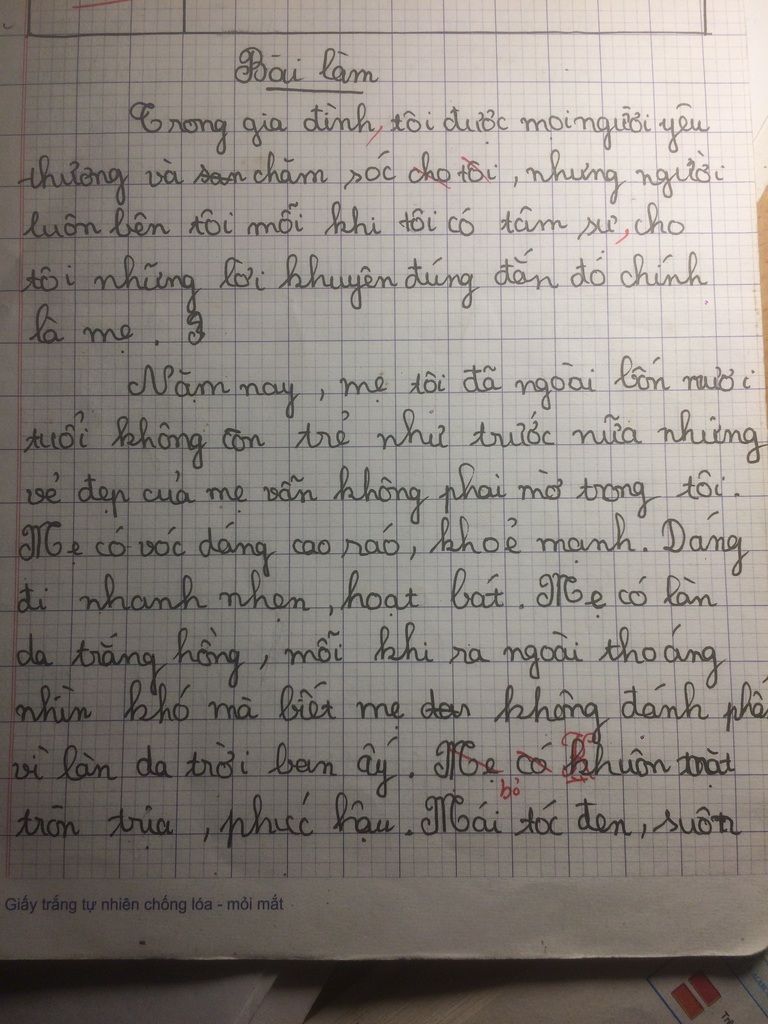 Bài làm
Trong gia đình, tôi được mọi người yêu
thương và chăm sóc cho tôi, nhưng người
luôn bên tôi mỗi khi tôi có tâm sự, cho
tôi những lời khuyên đúng đắn đó chính
là mẹ.
Năm nay, mẹ tôi đã ngoài bốn mươi
tuổi không còn trẻ như trước nữa nhưng
vẻ đẹp của mẹ vẫn không phai mờ trong tôi.
Mẹ có vóc dáng cao ráo, khoẻ mạnh. Dáng
đi nhanh nhẹn, hoạt bát. Mẹ có làn
da trắng hồng, mỗi khi ra ngoài thoáng
nhìn khó mà biết mẹ không đánh phấ
vì làn da trời ban ấy. Mẹ có khuôn mặt
bỏ
tròn trịa, phúc hậu. Mái tóc đen, suôn
Giấy trắng tự nhiên chống lóa - mỏi mắt